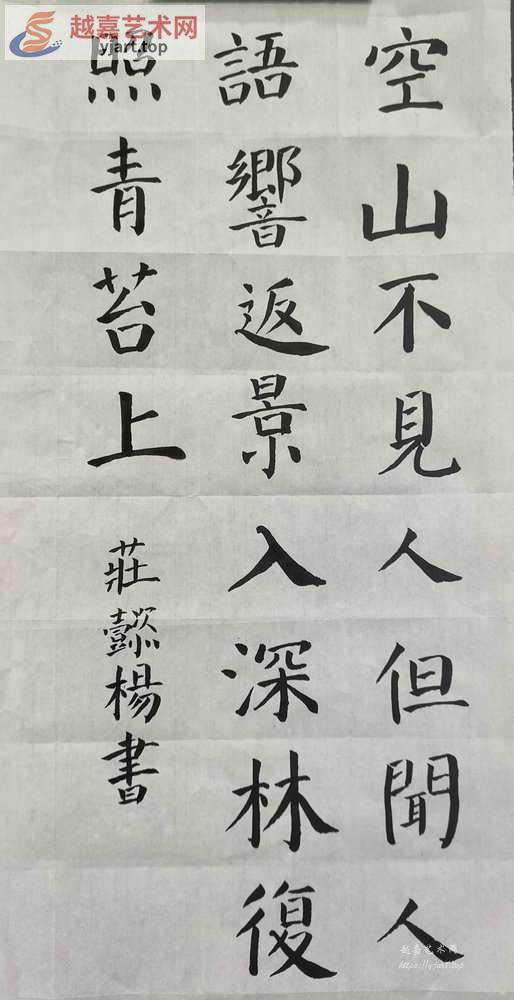 空山不見人但聞人
語響返景入深林復
照青苔上
莊懿楊書
越嘉艺术网
yjart.top
越嘉艺术网
https://yjart.top